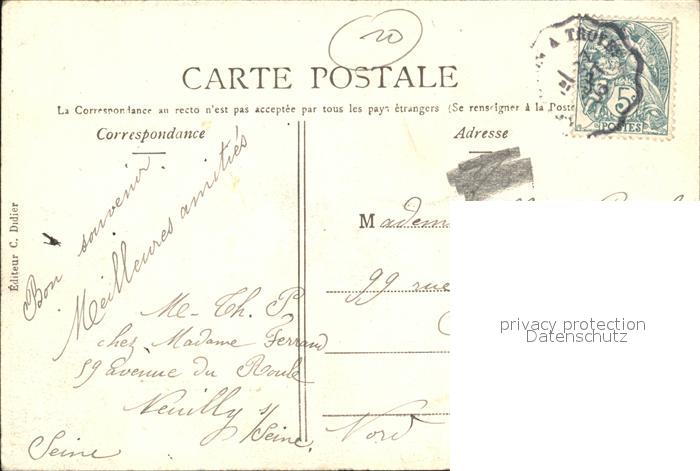 20
CARTE POSTALE
La Correspondance au recto n'est pas acceptée par tous les pays étrangers (Se renseigner à la Poste
Correspondance
Adresse
A TROYES
5
POSTES
Éditeur C. Didier
Bon souvenir
Meilleures amitiés
M-Th. P.
chez Madame Ferrand
59 Avenue du Roule
Neuilly s/
Seine.
Seine
Madem
99 rue
Nord
privacy protection
Datenschutz